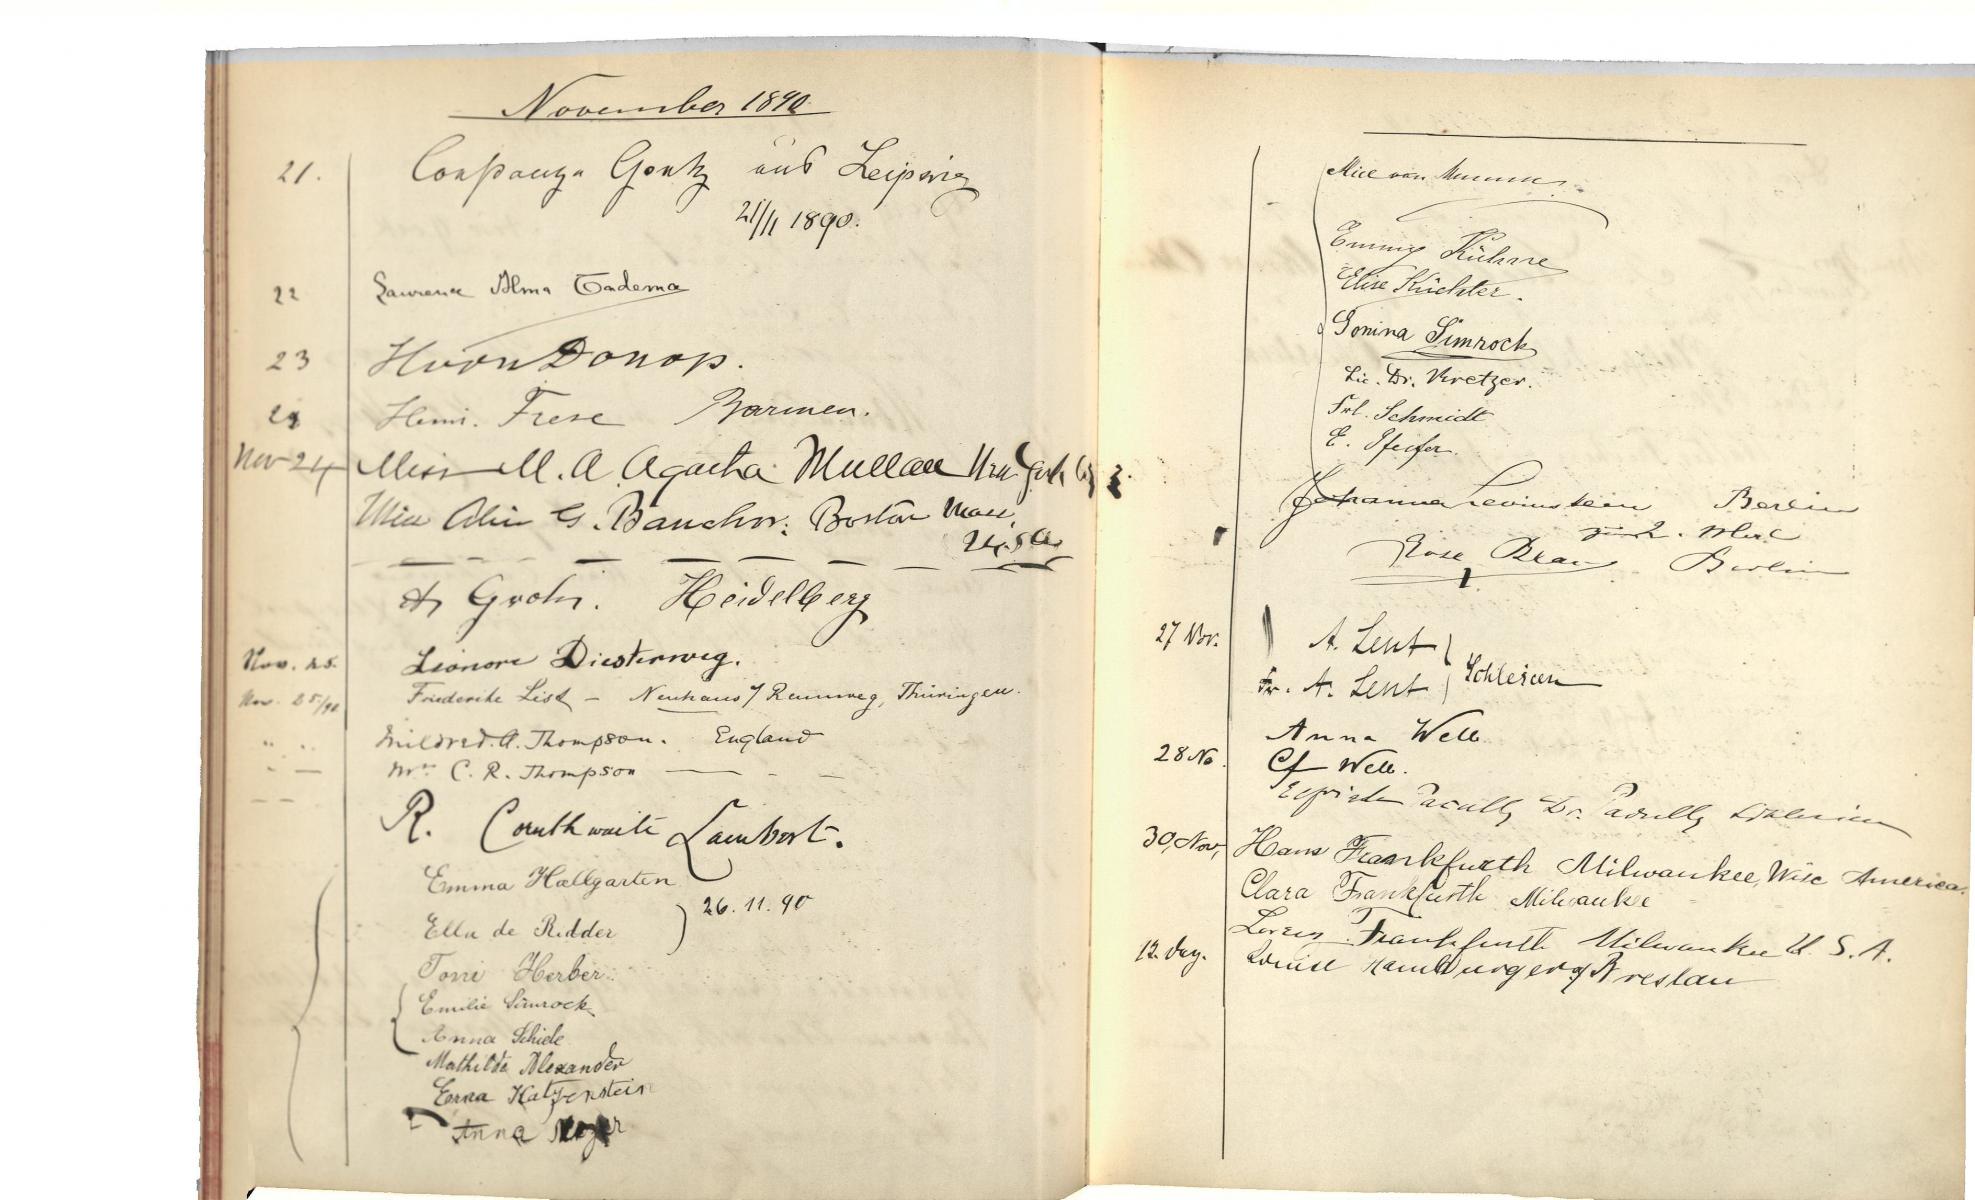 November 1890
21. Constanze Gentz aus Leipzig
21/11 1890.
22 Laurence Alma Tadema
23 H von Donop.
Frese Barmen.
Nov 24 Miss M. A. Agatha Mullan New York
Miss G. Bancher. Boston Mass.
Groh. Heidelberg
Nov. 25. Leonore Diesterweg.
Nov. 25/90 Friederike List – Neuhaus / Rennweg, Thüringen.
Mildred. A. Thompson. England
Mrs C. R. Thompson — - –
R. Cornthwaite Lambert.
Emma Hallgarten
26. 11. 90
Ella de Ridder
Toni Herber.
Emilie Simrock
Anna Schiele
Mathilde Alexander
Erna Katzenstein
Anna
Alice von
Emmy Kühne
Elise Küchler.
Simrock
Lic. Dr. Kretzer.
Frl. Schmidt
E. Pfeifer.
Johanna Levinstein Berlin
Rose Berlin
27 Nov. A. Lent
Schlesien
Fr. A. Lent
Anna Well
28 No. Well.
Dr. Schlesien
30, Nov, Hans Frankfurth Milwaukee, Wisc America.
Clara Frankfurth Milwaukee
Lorenz Frankfurth Milwaukee U. S. A.
12. Dez. Louise Hamburger Breslau